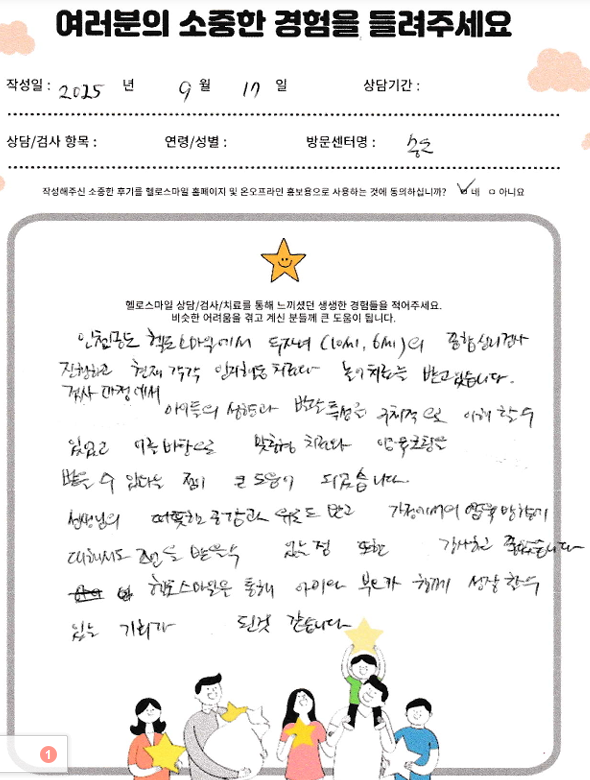 여러분의 소중한 경험을 들려주세요
작성일 : 2025 년 9 월 17 일 상담기간 :
상담/검사 항목 : 연령/성별 : 방문센터명 : 송도
작성해주신 소중한 후기를 헬로스마일 홈페이지 및 온오프라인 홍보용으로 사용하는 것에 동의하십니까? ☑ 네 □ 아니요
헬로스마일 상담/검사/치료를 통해 느끼셨던 생생한 경험들을 적어주세요.
비슷한 어려움을 겪고 계신 분들께 큰 도움이 됩니다.
인천송도 헬로스마일에서 두자녀 (10세, 6세)의 종합심리검사
진행하고 현재 각각 인지행동치료와 놀이치료를 받고있습니다.
검사 과정에서
아이들의 성향과 발달 특성을 구체적으로 이해 할수
있었고 이를 바탕으로 맞춤형 치료와 양육코칭을
받을 수 있다는 점이 큰 도움이 되었습니다.
선생님의 따뜻한 공감과 위로도 받고 가정에서의 양육 방향에
대해서도 조언을 받을수 있는점 또한 감사하고 좋았습니다
헬로스마일을 통해 아이와 부모가 함께 성장 할수
있는 기회가 된것 같습니다
1